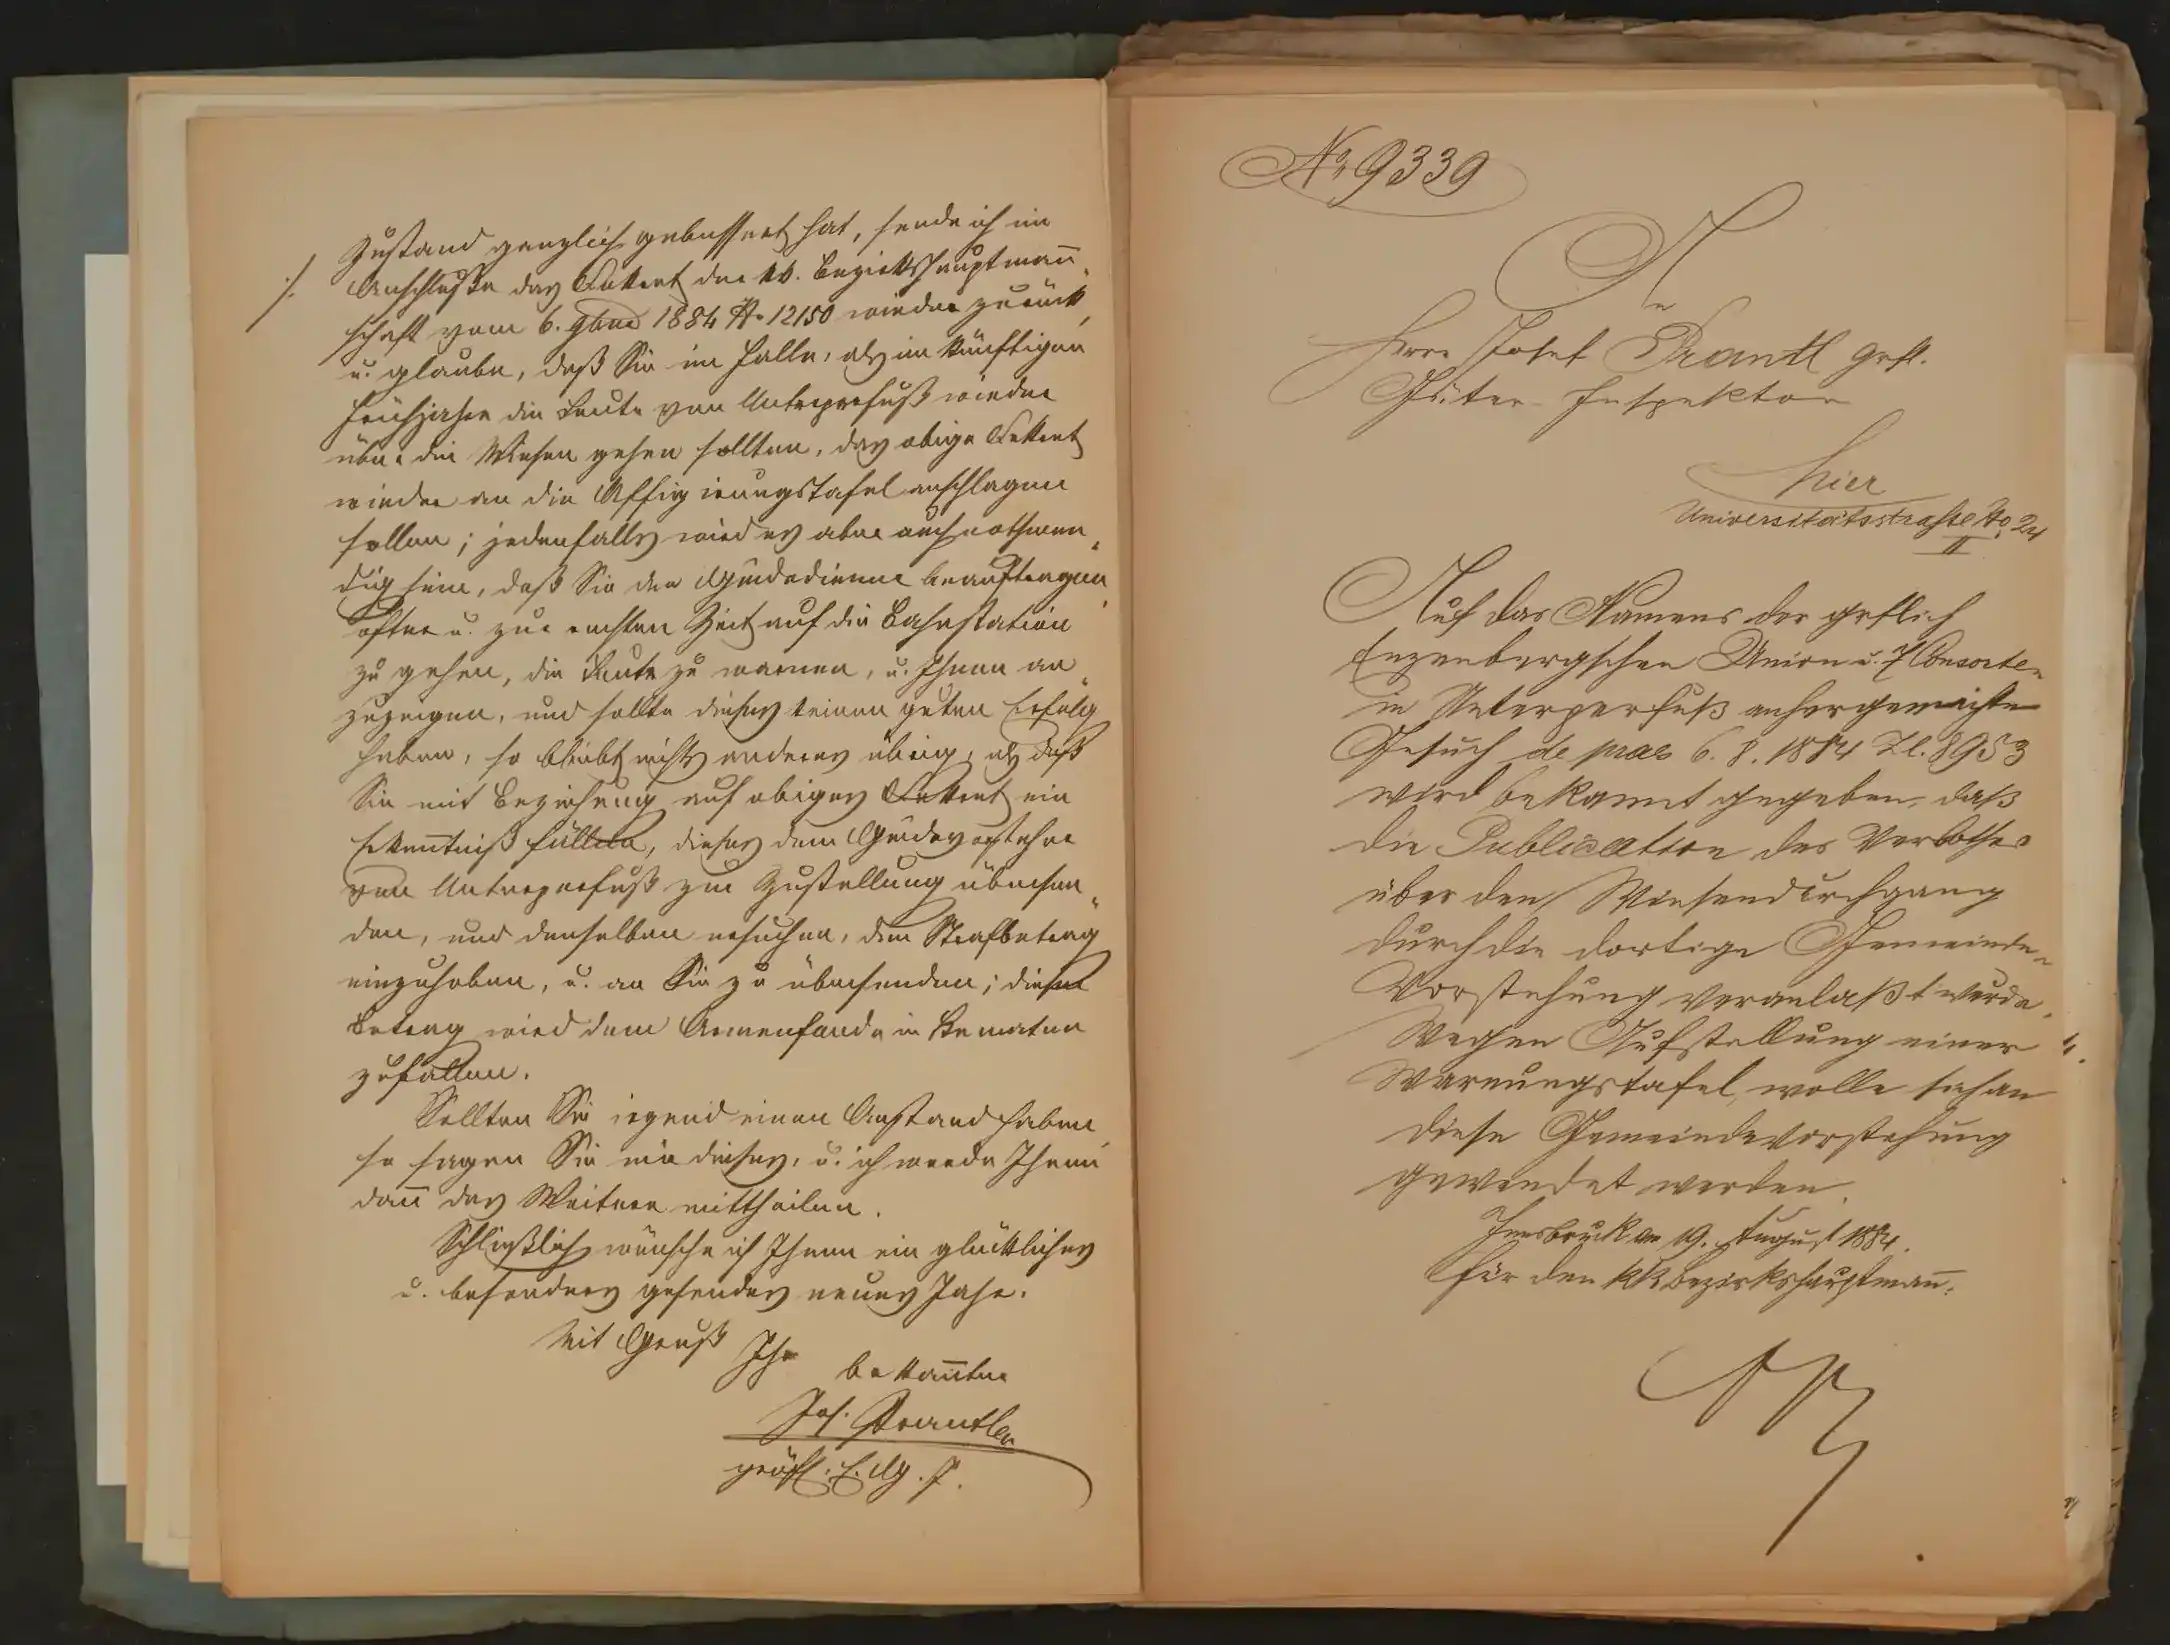 Zustand gänzlich gebessert hat, sende ich im
./. Anschlusse das Edikt der kk. Bezirkshauptmann„
schaft vom 6. 9ber 1884 No 12150 wieder zurück,
u. glaube, daß Sie im Falle, als im künftigen
Frühjahr die Leute von Unterperfuß wieder
über die Wiesen gehen sollten, das obige Edikt
wieder an die Affigirungstafel anschlagen
sollen; jedenfalls wird es aber auch nothwen„
dig sein, daß Sie den Gmdediener beauftragen,
öfter u. zur rechten Zeit auf die Bahnstation
zu gehen, die Leute zu warnen, u. Ihnen an„
zuzeigen, und sollte dieses keinen guten Erfolg
haben, so bleibt nichts anderes übrig, als daß
Sie mit Beziehung auf obiges Edikt ein
Erkenntniß fällen, dieses dem Gmdevorsteher
von Unterperfuß zur Zustellung übersen„
den, und denselben ersuchen, den Strafbetrag
einzuheben, u. an Sie zu übersenden; dieser
Betrag wird dem Armenfonde in Kematen
zufallen.
Sollten Sie irgend einen Anstand haben,
so sagen Sie mir dieses, u. ich werde Ihnen
dann das Weitere mittheilen.
Schließlich wünsche ich Ihnen ein glückliches
u. besonders gesundes neues Jahr.
Mit Gruß Ihr bekannter
Jos. Prantl
gräfl. E. G. I.
No 9339
An
Herrn Josef Prantl grfl.
Güter-Inspektor
hier
Universitätsstraße No 24
II
Auf das Namens der grflich
Enzenbergschen Union u. 7 Consorten
in Unterperfuß anhergemachte
Gesuch de praes 6. 8. 1884 Zl. 8953
wird bekannt gegeben, daß
die Publication des Verbothes
über den Wiesendurchgang
durch die dortige Gemeinde„
Vorstehung veranlaßt wurde.
Wegen Aufstellung einer
Warnungstafel wolle sich an
diese Gemeindevorstehung
gewendet werden.
Innsbruck am 19. August 1884.
Für den kk Bezirkshauptmann.